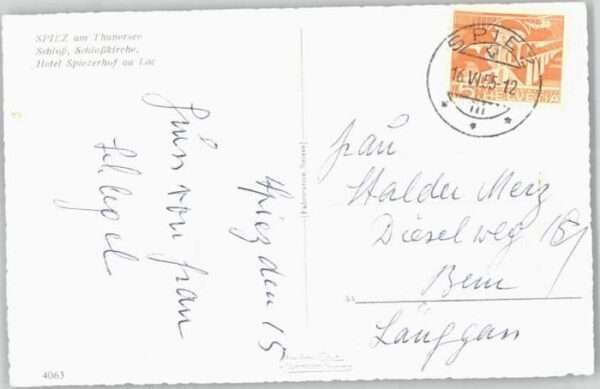 SPIEZ am Thunersee
Schloß, Schloßkirche,
Hotel Spiezerhof au Lac
SPIEZ
16.VI.55-12
5 HELVETIA
Spiez den 15
Gruss von Frau
Schlegel
Frau
Walder Merz
Dieselweg 18
Bern
Länggass
4063